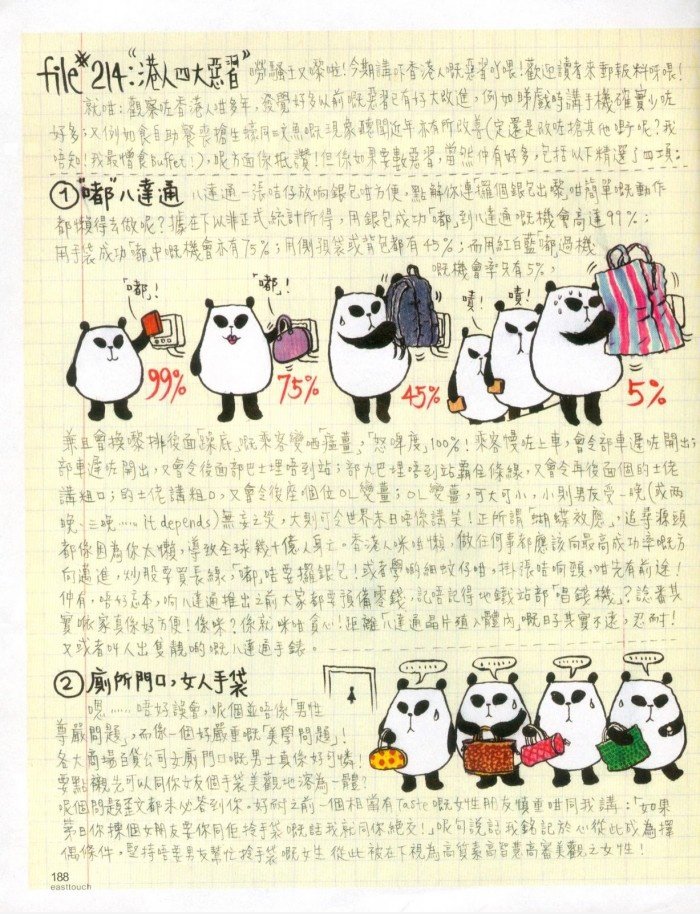 file*214:"港人四大惡習"
嘮騷王又嚟啦!今期講吓香港人嘅惡習吖喂!歡迎讀者來郵報料呀喂!
就咁:觀察咗香港人咁多年,發覺好多以前嘅惡習已有好大改進,例如睇戲時講手機確實少咗
好多;又例如食自助餐喪搶生蠔同三文魚嘅現象聽聞近年亦有所改善(定還是改咗搶其他嘢呢?我
唔知!我最憎食Buffet!),呢方面係抵讚!但係如果要數惡習,當然仲有好多,包括以下精選了四項:
①"嘟"八達通
八達通一張咭仔放响銀包咁方便,點解你連「攞個銀包出嚟」咁簡單嘅動作
都懶得去做呢?據在下以非正式統計所得,用銀包成功「嘟」到八達通嘅機會高達99%;
用手袋成功「嘟」中嘅機會亦有75%;用側預袋或背包都有45%;而用紅白藍「嘟」過機
嘅機會率只有5%,
「嘟」!
「嘟」!
嘖!
嘖!
99%
75%
45%
5%
兼且會換嚟排後面「躁底」嘅乘客變晒「瘟薑」,「怒啤度」100%!乘客慢咗上車,會令部車遲咗開出;
部車遲咗開出,又會令後面部巴士埋唔到站;部九巴埋唔到站霸住條線,又會令再後面個的士佬
講粗口;的士佬講粗口,又會令後座個位OL變薑;OL變薑,可大可小,小則男友受一晚(或兩
晚、三晚…… it depends)無妄之災,大則可令世界末日唔係講笑!正所謂「蝴蝶效應」,追尋源頭
都係因為你太懶,導致全球幾十億人身亡。香港人咪咁懶,做任何事都應該向最高成功率嘅方
向邁進,炒股要買長線,「嘟」咭要攞銀包!或者學啲細蚊仔咁,掛張咭响頸,咁先有前途!
仲有,唔好忘本,响八達通推出之前大家都要預備零錢,記唔記得地鐵站都「唱錢機」?諗番其
實𠵱家真係好方便!係咪?係就咪咁貪心!距離「八達通晶片植入體內」嘅日子其實不遠,忍耐!
又或者叫人出隻靚啲嘅八達通手錶。
②廁所門口,女人手袋
嗯……唔好誤會,呢個並唔係「男性
尊嚴問題」,而係一個好嚴重嘅「美學問題」!
各大商場百貨公司女廁門口嘅男士真係好可憐!
要點襯先可以同你女友個手袋美觀地溶為一體?
呢個問題歪文都未必答到你。好耐之前一個相當有Taste嘅女性朋友慎重咁同我講:「如果
第日你揀個女朋友要你同佢拎手袋嘅話我就同你絕交!」呢句說話我銘記於心從此成為擇
偶條件,堅持唔要男友幫忙拎手袋嘅女生從此被在下視為高質素高智慧高審美觀之女性!
188
easttouch